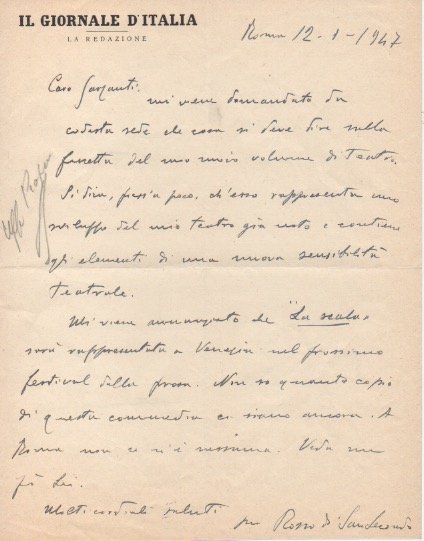 IL GIORNALE D'ITALIA
LA REDAZIONE
Roma 12-1-1947
Caro Garzanti:
mi viene domandato da
codesta sede che cosa si deve dire sulla
fascetta del mio nuovo volume di Teatro.
Si dica, press'a poco, ch'esso rappresenta uno
sviluppo del mio teatro già noto e contiene
gli elementi di una nuova sensibilità
teatrale.
Mi viene annunziato che "La scala"
sarà rappresentata a Venezia nel prossimo
festival della prosa. Non so quante copie
di questa commedia ci siano ancora. A
Roma non ce n'è nessuna. Veda un
pò Lei.
Molti cordiali saluti
Rosso di San Secondo